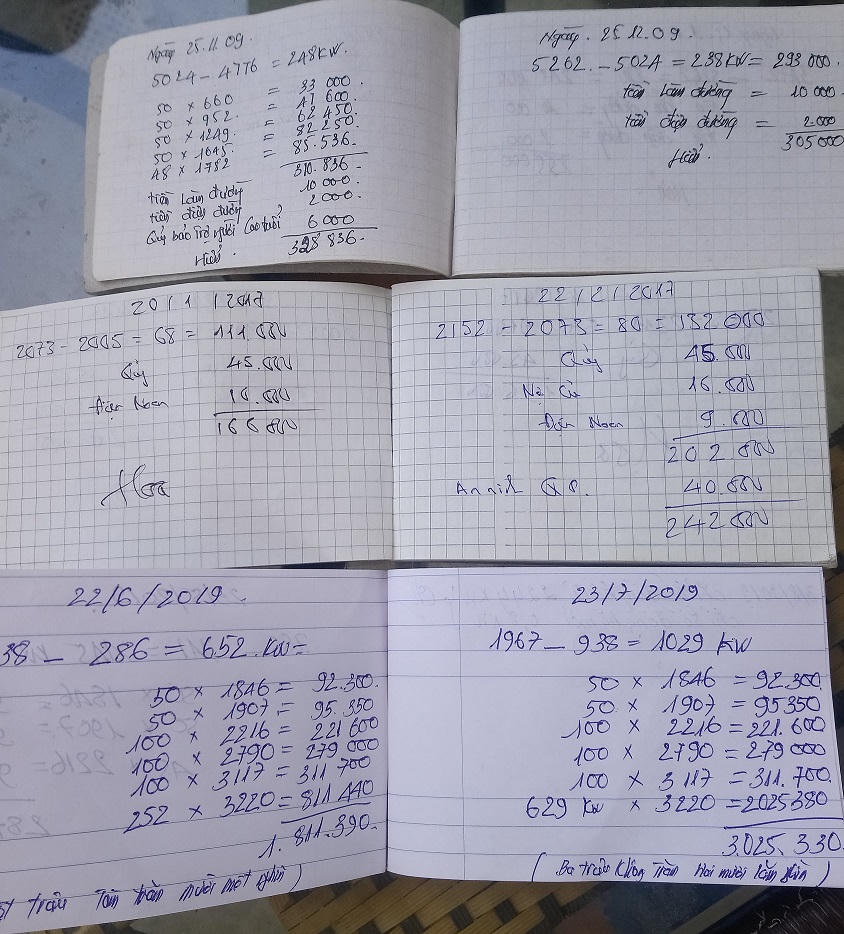 Ngày 25.11.09.
5024 - 4776 = 248KW.
50 x 660 = 33 000.
50 x 952 = 47 600.
50 x 1249. = 62 450.
50 x 1645. = 82 250.
48 x 1782 = 85.536.
310.836.
tiền Làm đường 10 000.
tiền điện đường 2000.
Qũy bảo trợ người Cao tuổi 6000
Hiểu. 328 836.
Ngày. 25.12.09.
5262. - 5024 = 238KW = 293 000.
tiền Làm đường = 10 000.
tiền điện đường = 2.000
305 000
Hiểu.
20/1/2017
2073 - 2005 = 68 = 111.000
Qũy 45.000
Điện 10.000
166 000
Hoa
22/2/2017
2152 - 2073 = 80 = 132 000
Qũy 45.000
16.000
Điện 9.000
202 000
40.000
242 000
22/6/2019.
38 - 286 = 652.KW=
50 x 1846 = 92.300.
50 x 1907 = 95.350
100 x 2216 = 221 600
100 x 2790 = 279 000
100 x 3117 = 311 700
252 x 3220 = 811 440
1. 811.390.
triệu Tám trăm mười một nghìn)
23/7/2019
1967 - 938 = 1029 KW
50 x 1846 = 92.300.
50 x 1907 = 95350
100 x 2216 = 221.600
100 x 2790 = 279 000
100 x 3117 = 311.700.
629 KW x 3220 = 2025380
3.025.330
(Ba triệu Không Trăm Hai mười lăm ghìn)